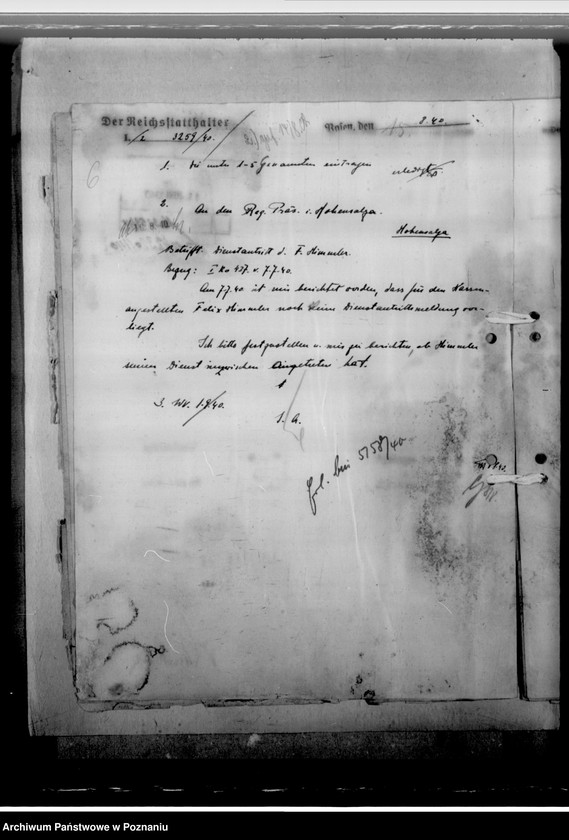 Der Reichsstatthalter
Posen, den 15. 8.40.
I/2 3259/40.
1. die unter 1-5 Genannten eintragen
erledigt
6
2.
An den Reg. Präs. i. Hohensalza.
Hohensalza
Betrifft: Dienstantritt d. F. Himmler.
Bezug: I Ko 437. v. 7.7.40.
Am 7.7.40 ist mir berichtet worden, dass für den
angestellten Felix Himmler noch keine Dienstantrittsmeldung vor-
liegt.
Ich bitte festzustellen u. mir zu berichten, ob Himmler
seinen Dienst inzwischen angetreten hat.
3. Wv. 1.9/40.
I. A.
Erl. bei 5158/40
Archiwum Państwowe w Poznaniu